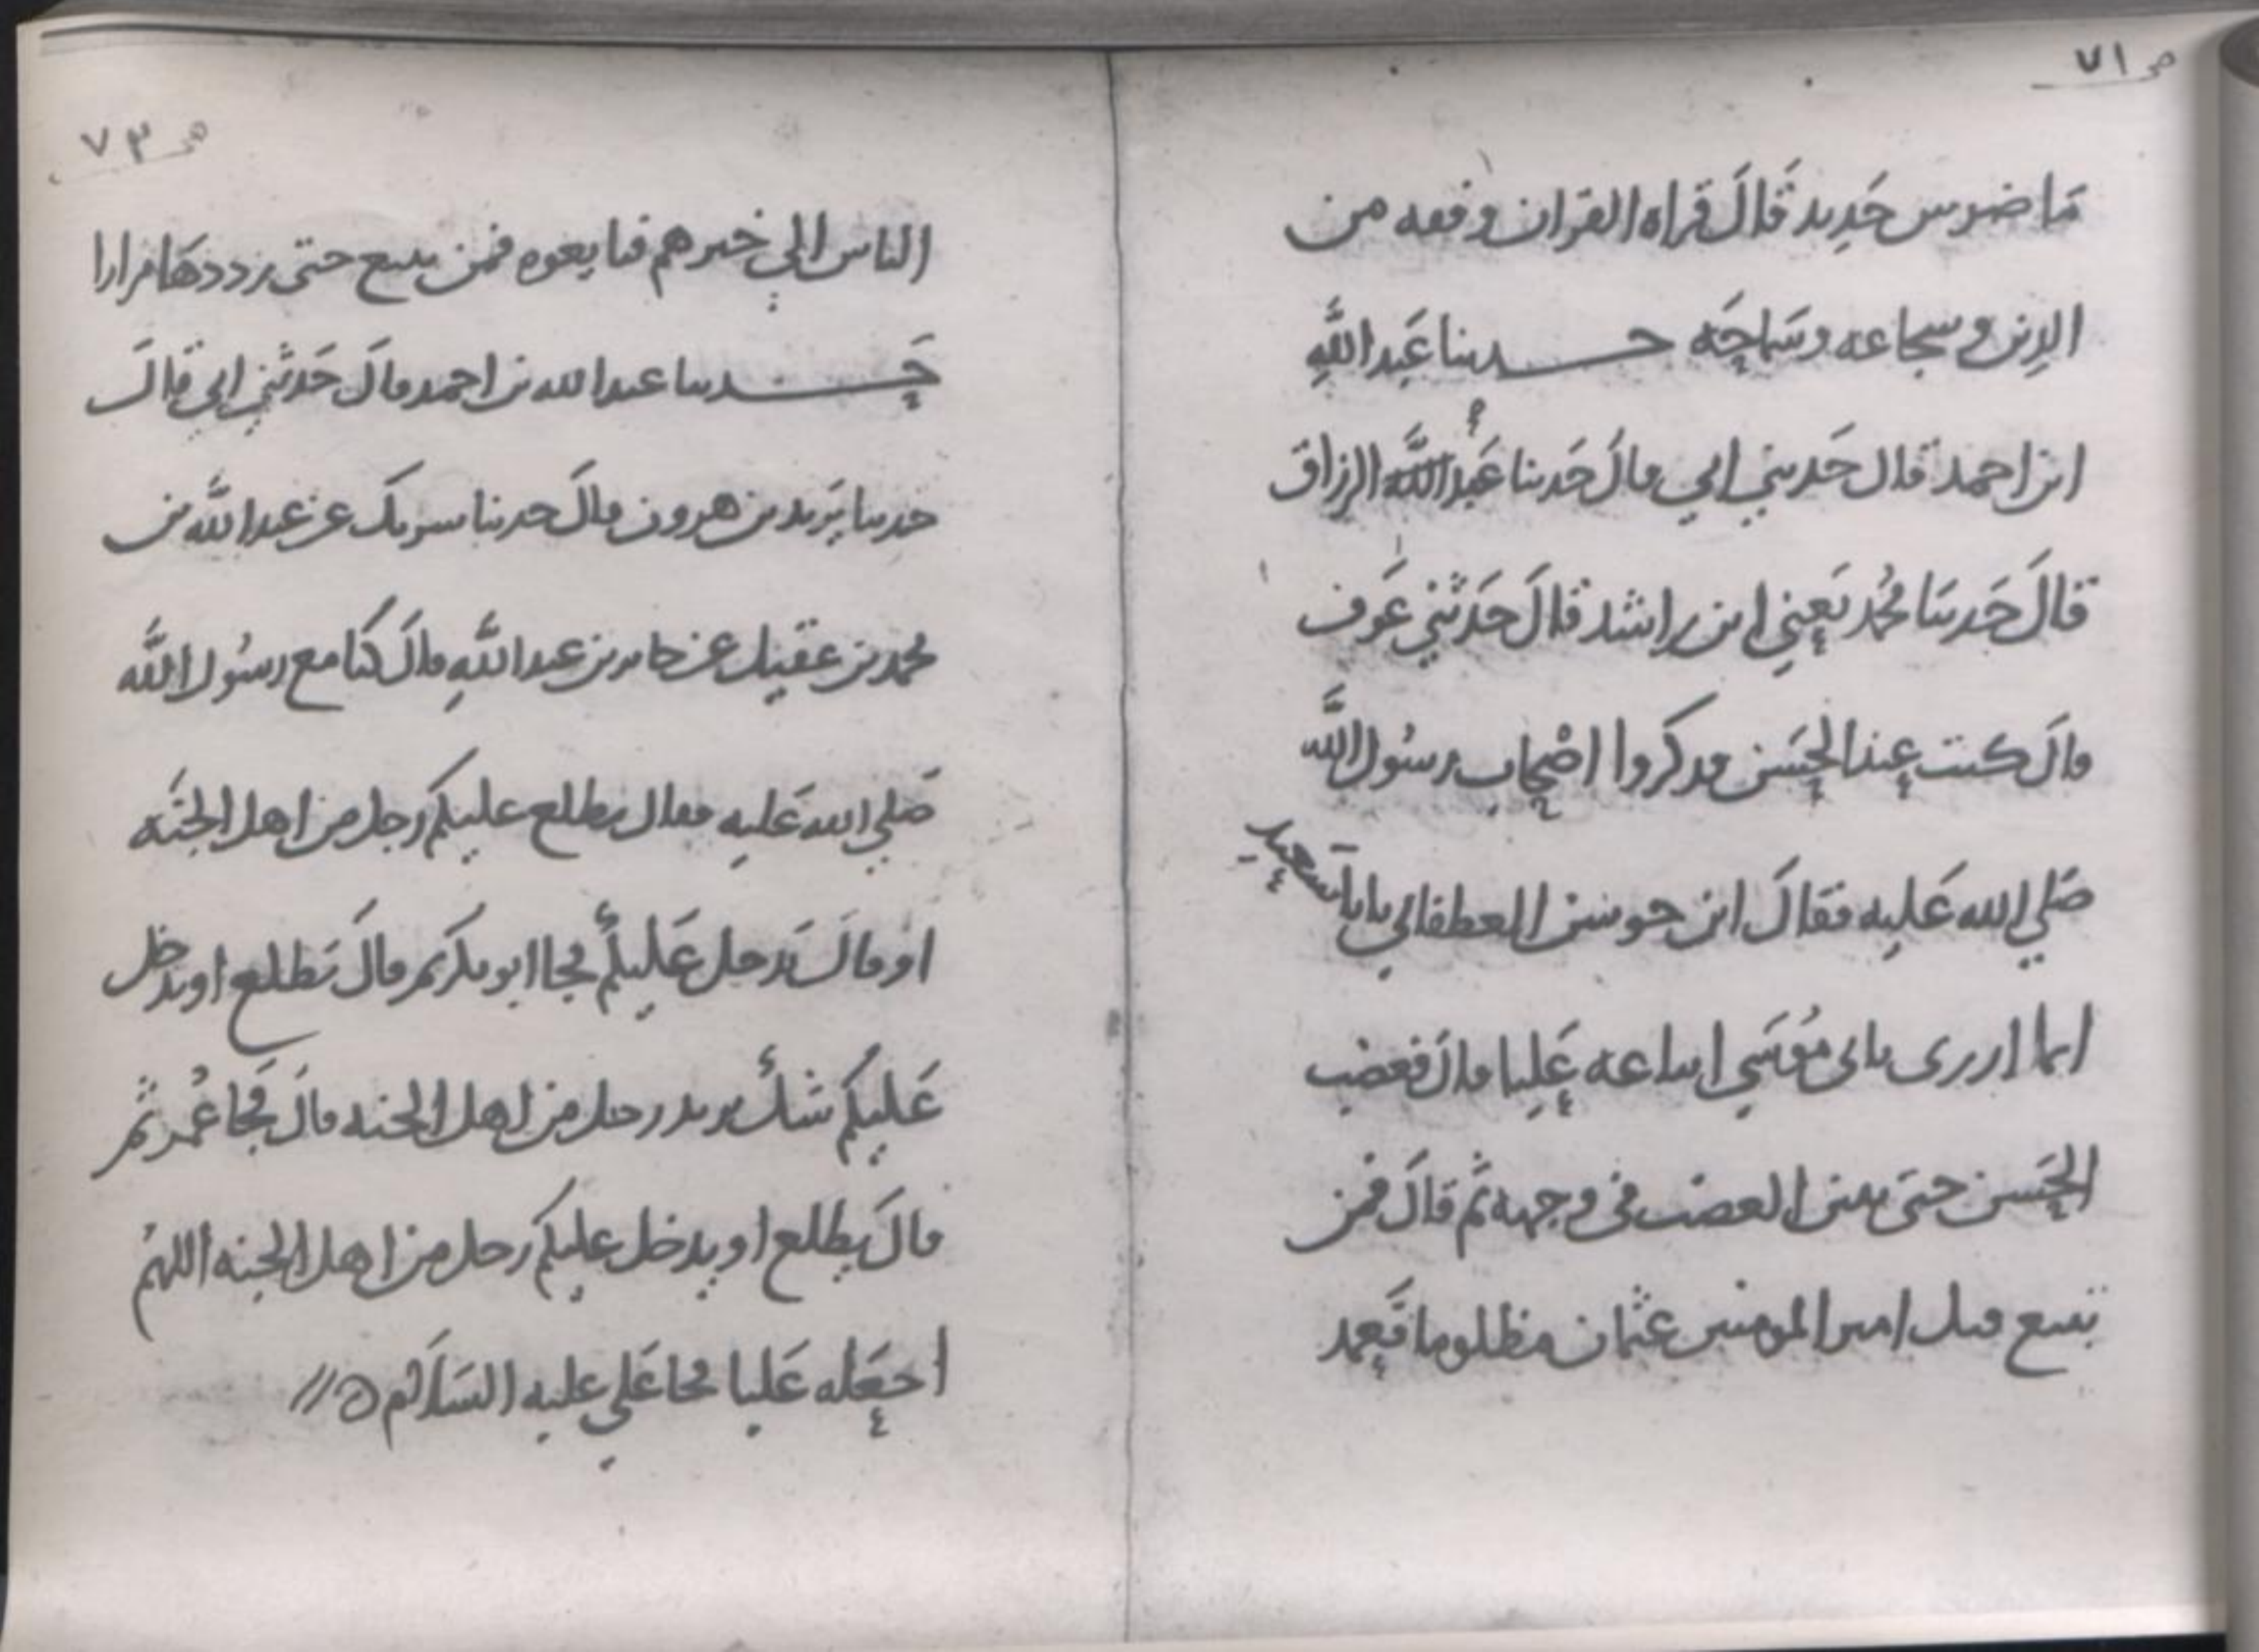 ص ٧١
ما ضرس حديد قال قراه القران وفقه من
الدين وسجاعه وسماحه حدثنا عَبد اللَّهِ
ابن احمد قال حَدثني ابي قال حَدثنا عَبد الرزاق
قالَ حَدثنا محُمد يَعني ابن راشد قالَ حَدَّثني عَوف
قالَ كنت عِند الحسَن فذكروا اصْحاب رسُول اللَّه
صَلي الله عَليه فقالَ ابن جوشن الغطفاني يابا سعيد
انما ازرى بابى مُوسَي اتباعه عَليا قال فغضب
الحَسن حتى تبين الغضب فى وجهه ثم قالَ فمن
يتبع قتل امير المومنين عثمان مظلوما فَعمد
ص ٧٣
الناس الي خيرهم فبايعوه فمن يتبع حتى رددهَا مرارا
حَدثنا عبد الله بن احمد قالَ حَدثني ابي قالَ
حدثنا يَزيد بن هرون قالَ حدثنا شريك عن عبد اللَّه بن
محمد بن عقيل عن جابر بن عبد اللَّهِ قالَ كنا مع رسُول اللَّه
صَلي الله عَليه فقال يطلع عليكم رجل من اهل الجنَه
او قالَ يَدخل عَليكم فجا ابو بكر ثم قالَ يَطلع او يدخل
عَليكم شكُ يزيد رجل من اهل الجنه قالَ فجَا عُمر ثم
قالَ يطلع او يدخل عليكم رجل من اهل الجنه اللهُم
اجعَله عَليا فجا عَلي عليه السَلام ه //